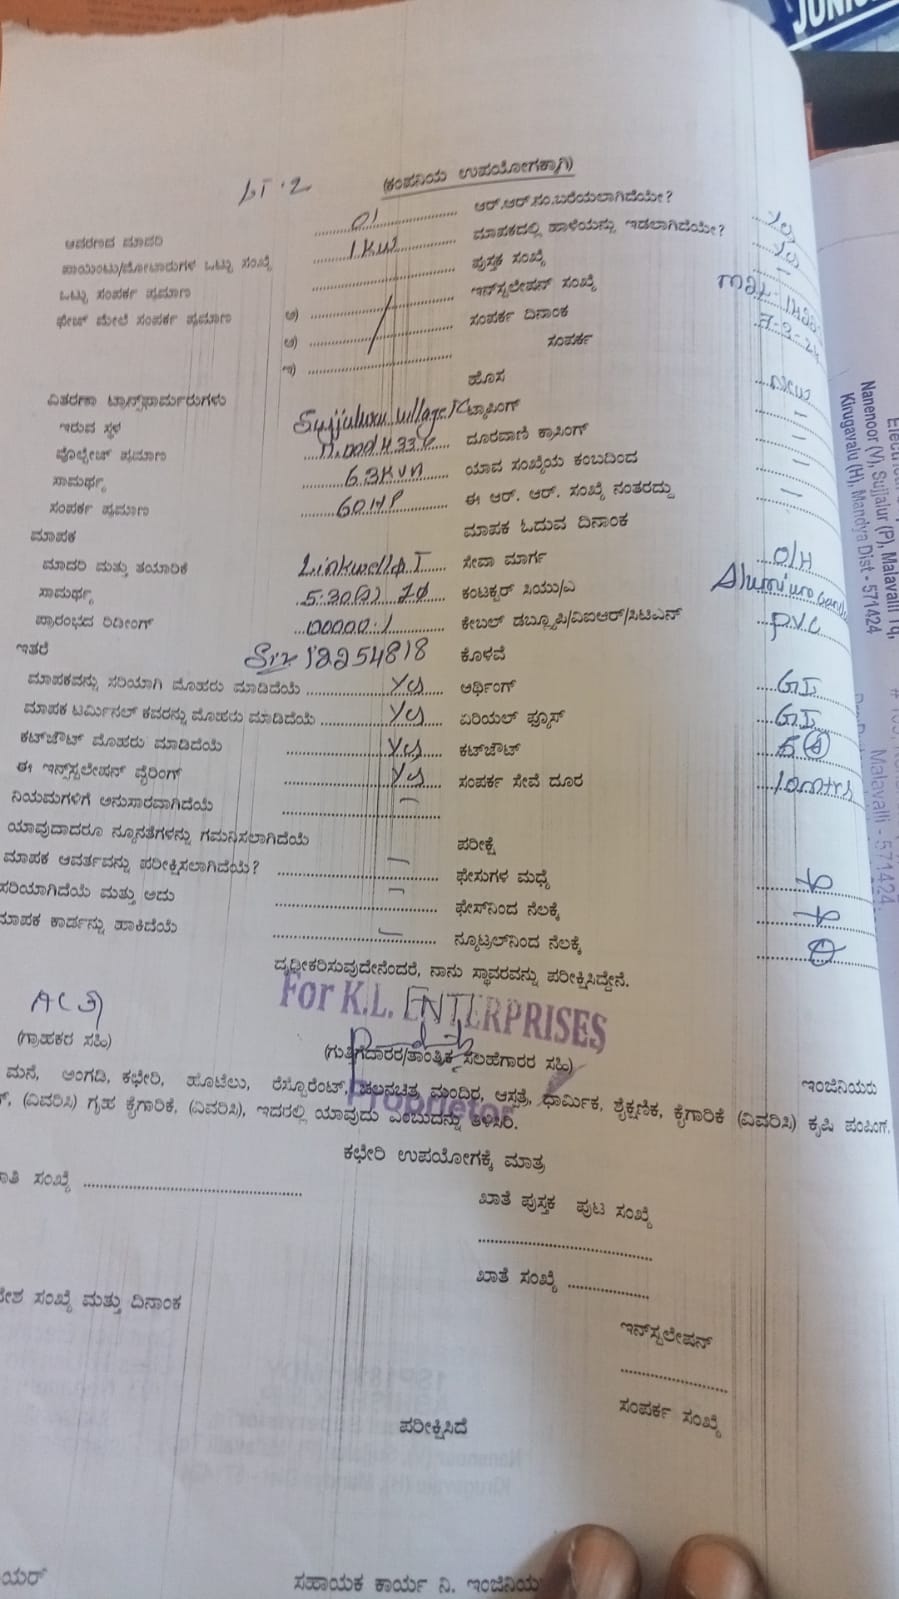 JUNIO
LT-2
(ಕಂಪನಿಯ ಉಪಯೋಗಕ್ಕಾಗಿ)
ಆವರಣದ ಮಾದರಿ 01 ಆರ್.ಆರ್.ನಂ.ಬರೆಯಲಾಗಿದೆಯೇ? Yes
ಪಾಯಿಂಟು/ಮೋಟಾರುಗಳ ಒಟ್ಟು ಸಂಖ್ಯೆ 1KW ಮಾಪಕದಲ್ಲಿ ಹಾಳೆಯನ್ನು ಇಡಲಾಗಿದೆಯೇ? Yes
ಒಟ್ಟು ಸಂಪರ್ಕ ಪ್ರಮಾಣ ಪುಸ್ತಕ ಸಂಖ್ಯೆ –
ಫೇಜ್ ಮೇಲೆ ಸಂಪರ್ಕ ಪ್ರಮಾಣ ಅ) ಇನ್‌ಸ್ಟಲೇಷನ್ ಸಂಖ್ಯೆ
ಆ) ಸಂಪರ್ಕ ದಿನಾಂಕ
ಇ) ಸಂಪರ್ಕ
ಹೊಸ New
ವಿತರಣಾ ಟ್ರಾನ್ಸ್‌ಫಾರ್ಮರುಗಳು ಟ್ಯಾಪಿಂಗ್ –
ಇರುವ ಸ್ಥಳ village ದೂರವಾಣಿ ಕ್ರಾಸಿಂಗ್ –
ವೋಲ್ಟೇಜ್ ಪ್ರಮಾಣ ಯಾವ ಸಂಖ್ಯೆಯ ಕಂಬದಿಂದ –
ಸಾಮರ್ಥ್ಯ 63KVA ಈ ಆರ್. ಆರ್. ಸಂಖ್ಯೆ ನಂತರದ್ದು –
ಸಂಪರ್ಕ ಪ್ರಮಾಣ 60HP ಮಾಪಕ ಓದುವ ದಿನಾಂಕ
ಮಾಪಕ
ಮಾದರಿ ಮತ್ತು ತಯಾರಿಕೆ ಸೇವಾ ಮಾರ್ಗ O/H
ಸಾಮರ್ಥ್ಯ 5-30(A) 1ϕ ಕಂಟಕ್ಟರ್ ಸಿಯು/ಎ
ಪ್ರಾರಂಭದ ರಿಡೀಂಗ್ 00000.1 ಕೇಬಲ್ ಡಬ್ಲ್ಯೂಪಿ/ವಿಐಆರ್/ಸಿಟಿಎನ್ PVC
ಇತರೆ 12254818 ಕೊಳವೆ
ಮಾಪಕವನ್ನು ಸರಿಯಾಗಿ ಮೊಹರು ಮಾಡಿದೆಯೆ Yes ಅರ್ಥಿಂಗ್ GI
ಮಾಪಕ ಟರ್ಮಿನಲ್ ಕವರನ್ನು ಮೊಹರು ಮಾಡಿದೆಯೆ Yes ಏರಿಯಲ್ ಫ್ಯೂಸ್ GI
ಕಟ್‌ಔಟ್ ಮೊಹರು ಮಾಡಿದೆಯೆ Yes ಕಟ್‌ಔಟ್ 5(A)
ಈ ಇನ್ಸ್‌ಟಲೇಷನ್ ವೈರಿಂಗ್ Yes ಸಂಪರ್ಕ ಸೇವೆ ದೂರ 10mtrs
ನಿಯಮಗಳಿಗೆ ಅನುಸಾರವಾಗಿದೆಯೆ –
ಯಾವುದಾದರೂ ನ್ಯೂನತೆಗಳನ್ನು ಗಮನಿಸಲಾಗಿದೆಯೆ ಪರೀಕ್ಷೆ
ಮಾಪಕ ಆವರ್ತವನ್ನು ಪರೀಕ್ಷಿಸಲಾಗಿದೆಯೆ? – ಫೇಸುಗಳ ಮಧ್ಯೆ
ಸರಿಯಾಗಿದೆಯೆ ಮತ್ತು ಅದು – ಫೇಸ್‌ನಿಂದ ನೆಲಕ್ಕೆ
ಮಾಪಕ ಕಾರ್ಡನ್ನು ಹಾಕಿದೆಯೆ – ನ್ಯೂಟ್ರಲ್‌ನಿಂದ ನೆಲಕ್ಕೆ
ದೃಢೀಕರಿಸುವುದೇನೆಂದರೆ, ನಾನು ಸ್ಥಾವರವನ್ನು ಪರೀಕ್ಷಿಸಿದ್ದೇನೆ.
For K.L. ENTERPRISES
(ಗ್ರಾಹಕರ ಸಹಿ) (ಗುತ್ತಿಗೆದಾರರ/ತಾಂತ್ರಿಕ ಸಲಹೆಗಾರರ ಸಹಿ) ಇಂಜಿನಿಯರು
Proprietor
ಮನೆ, ಅಂಗಡಿ, ಕಛೇರಿ, ಹೊಟೆಲು, ರೆಸ್ಟೊರೆಂಟ್, ಚಲನಚಿತ್ರ ಮಂದಿರ, ಆಸ್ಪತ್ರೆ, ಧಾರ್ಮಿಕ, ಶೈಕ್ಷಣಿಕ, ಕೈಗಾರಿಕೆ (ವಿವರಿಸಿ) ಕೃಷಿ ಪಂಪಿಂಗ್.
(ವಿವರಿಸಿ) ಗೃಹ ಕೈಗಾರಿಕೆ, (ವಿವರಿಸಿ), ಇದರಲ್ಲಿ ಯಾವುದು ಎಂಬುದನ್ನು ತಿಳಿಸಿರಿ.
ಕಛೇರಿ ಉಪಯೋಗಕ್ಕೆ ಮಾತ್ರ
ಸಂಖ್ಯೆ ಖಾತೆ ಪುಸ್ತಕ ಪುಟ ಸಂಖ್ಯೆ
ಖಾತೆ ಸಂಖ್ಯೆ
ಸಂಖ್ಯೆ ಮತ್ತು ದಿನಾಂಕ
ಇನ್‌ಸ್ಟಲೇಷನ್
ಸಂಪರ್ಕ ಸಂಖ್ಯೆ
ಪರೀಕ್ಷಿಸಿದೆ
ಸಹಾಯಕ ಕಾರ್ಯ ನಿ. ಇಂಜಿನಿಯ
Nanenoor (V), Sujjalur (P), Malavalli Tq,
Kirugavalu (H), Mandya Dist - 571424
Malavalli - 571424